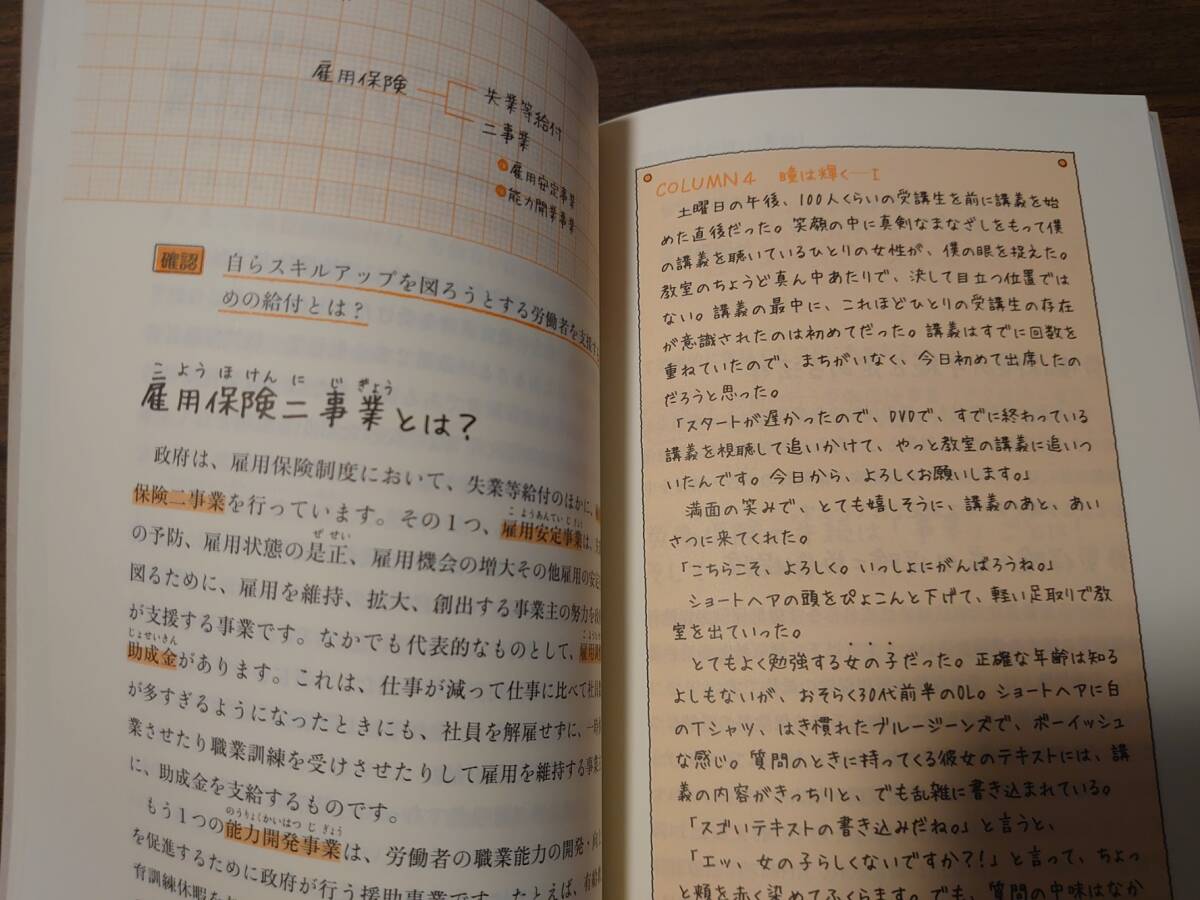 雇用保険
失業等給付
二事業
雇用安定事業
能力開発事業
確認 自らスキルアップを図ろうとする労働者を支援するた
めの給付とは?
こようほけんにじぎょう
雇用保険二事業とは?
政府は、雇用保険制度において、失業等給付のほかに、
保険二事業を行っています。その1つ、雇用安定事業は、
の予防、雇用状態の是正、雇用機会の増大その他雇用の安定
図るために、雇用を維持、拡大、創出する事業主の努力を
が支援する事業です。なかでも代表的なものとして、雇用
助成金があります。これは、仕事が減って仕事に比べて社員
が多すぎるようになったときにも、社員を解雇せずに、一時
業させたり職業訓練を受けさせたりして雇用を維持する事業
に、助成金を支給するものです。
もう1つの能力開発事業は、労働者の職業能力の開発・向
を促進するために政府が行う援助事業です。たとえば、有給
育訓練休暇を
COLUMN4 瞳は輝く─I
土曜日の午後、100人くらいの受講生を前に講義を始
めた直後だった。笑顔の中に真剣なまなざしをもって僕
の講義を聴いているひとりの女性が、僕の眼を捉えた。
教室のちょうど真ん中あたりで、決して目立つ位置では
ない。講義の最中に、これほどひとりの受講生の存在
が意識されたのは初めてだった。講義はすでに回数を
重ねていたので、まちがいなく、今日初めて出席したの
だろうと思った。
「スタートが遅かったので、DVDで、すでに終わっている
講義を視聴して追いかけて、やっと教室の講義に追いつ
いたんです。今日から、よろしくお願いします。」
満面の笑みで、とても嬉しそうに、講義のあと、あい
さつに来てくれた。
「こちらこそ、よろしく。いっしょにがんばろうね。」
ショートヘアの頭をぴょこんと下げて、軽い足取りで教
室を出ていった。
とてもよく勉強する女の子だった。正確な年齢は知る
よしもないが、おそらく30代前半のOL。ショートヘアに白
のTシャツ、はき慣れたブルージーンズで、ボーイッシュ
な感じ。質問のときに持ってくる彼女のテキストには、講
義の内容がきっちりと、でも乱雑に書き込まれている。
「スゴいテキストの書き込みだね。」と言うと、
「エッ、女の子らしくないですか?!」と言って、ちょっ
と頬を赤く染めてふくらます。でも、質問の中味はなか